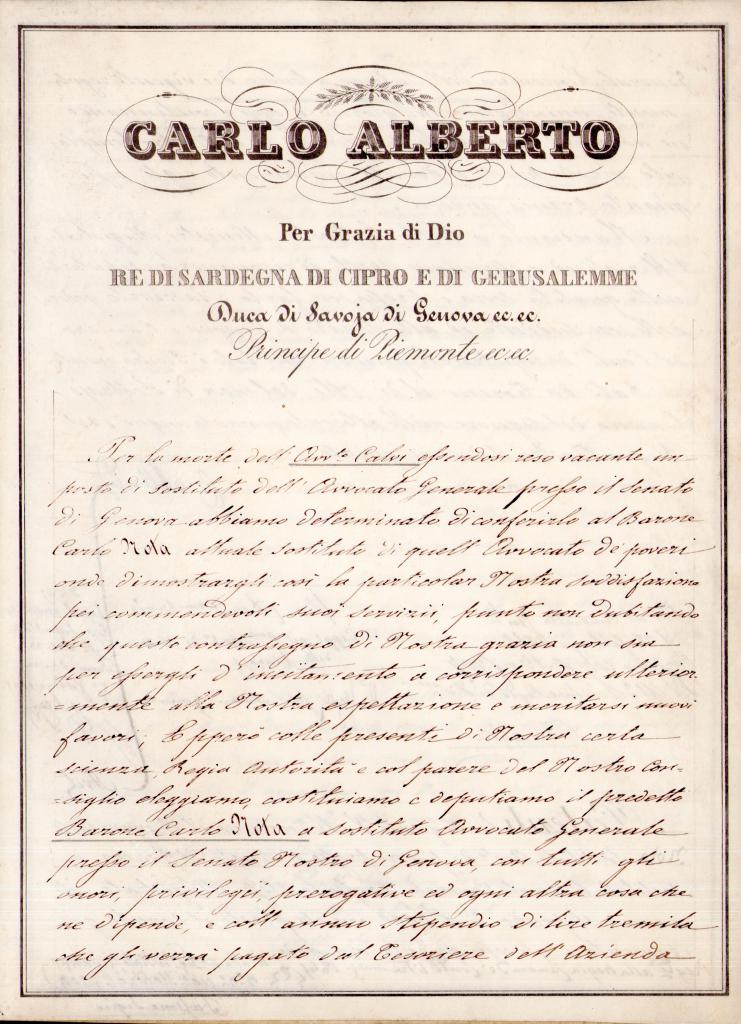 CARLO ALBERTO
Per Grazia di Dio
RE DI SARDEGNA DI CIPRO E DI GERUSALEMME
Duca di Savoja di Genova ec. ec.
Principe di Piemonte ec. ec.
Per la morte dell' Avv.to Calvi essendosi reso vacante un
posto di Sostituto dell' Avvocato Generale presso il Senato
di Genova abbiamo determinato di conferirlo al Barone
Carlo Nota attuale Sostituto di quell' Avvocato de' poveri
onde dimostrargli così la particolar Nostra soddisfazione
pei commendevoli suoi servizii, punto non dubitando
che questo contrassegno di Nostra grazia non sia
per essergli d' incitamento a corrispondere ulterior-
=mente alla Nostra espettazione e meritarsi nuovi
favori; Epperò colle presenti di Nostra certa
scienza, Regia Autorità e col parere del Nostro Con-
=siglio eleggiamo, costituiamo e deputiamo il predetto
Barone Carlo Nota a Sostituto Avvocato Generale
presso il Senato Nostro di Genova, con tutti gli
onori, privilegi, prerogative ed ogni altra cosa che
ne dipende, e coll' annuo stipendio di lire tremila
che gli verrà pagato dal Tesoriere dell' Azienda